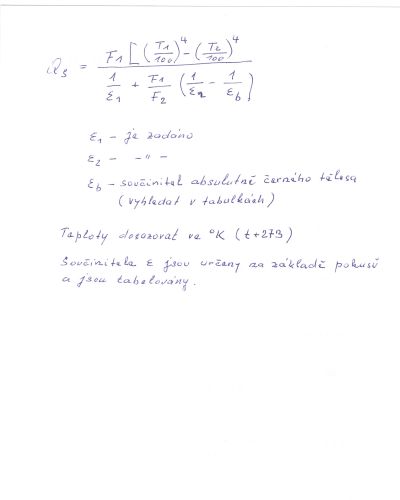 Q₃ = F₁ [ (T₁/100)⁴ - (T₂/100)⁴ / 1/ε₁ + F₁/F₂ ( 1/ε₂ - 1/ε_b )
ε₁ - je zadáno
ε₂ - - " -
ε_b - součinitel absolutně černého tělesa
(vyhledat v tabulkách)
Teploty dosazovat ve °K (t+273)
Součinitele ε jsou určeny na základě pokusů
a jsou tabelovány.